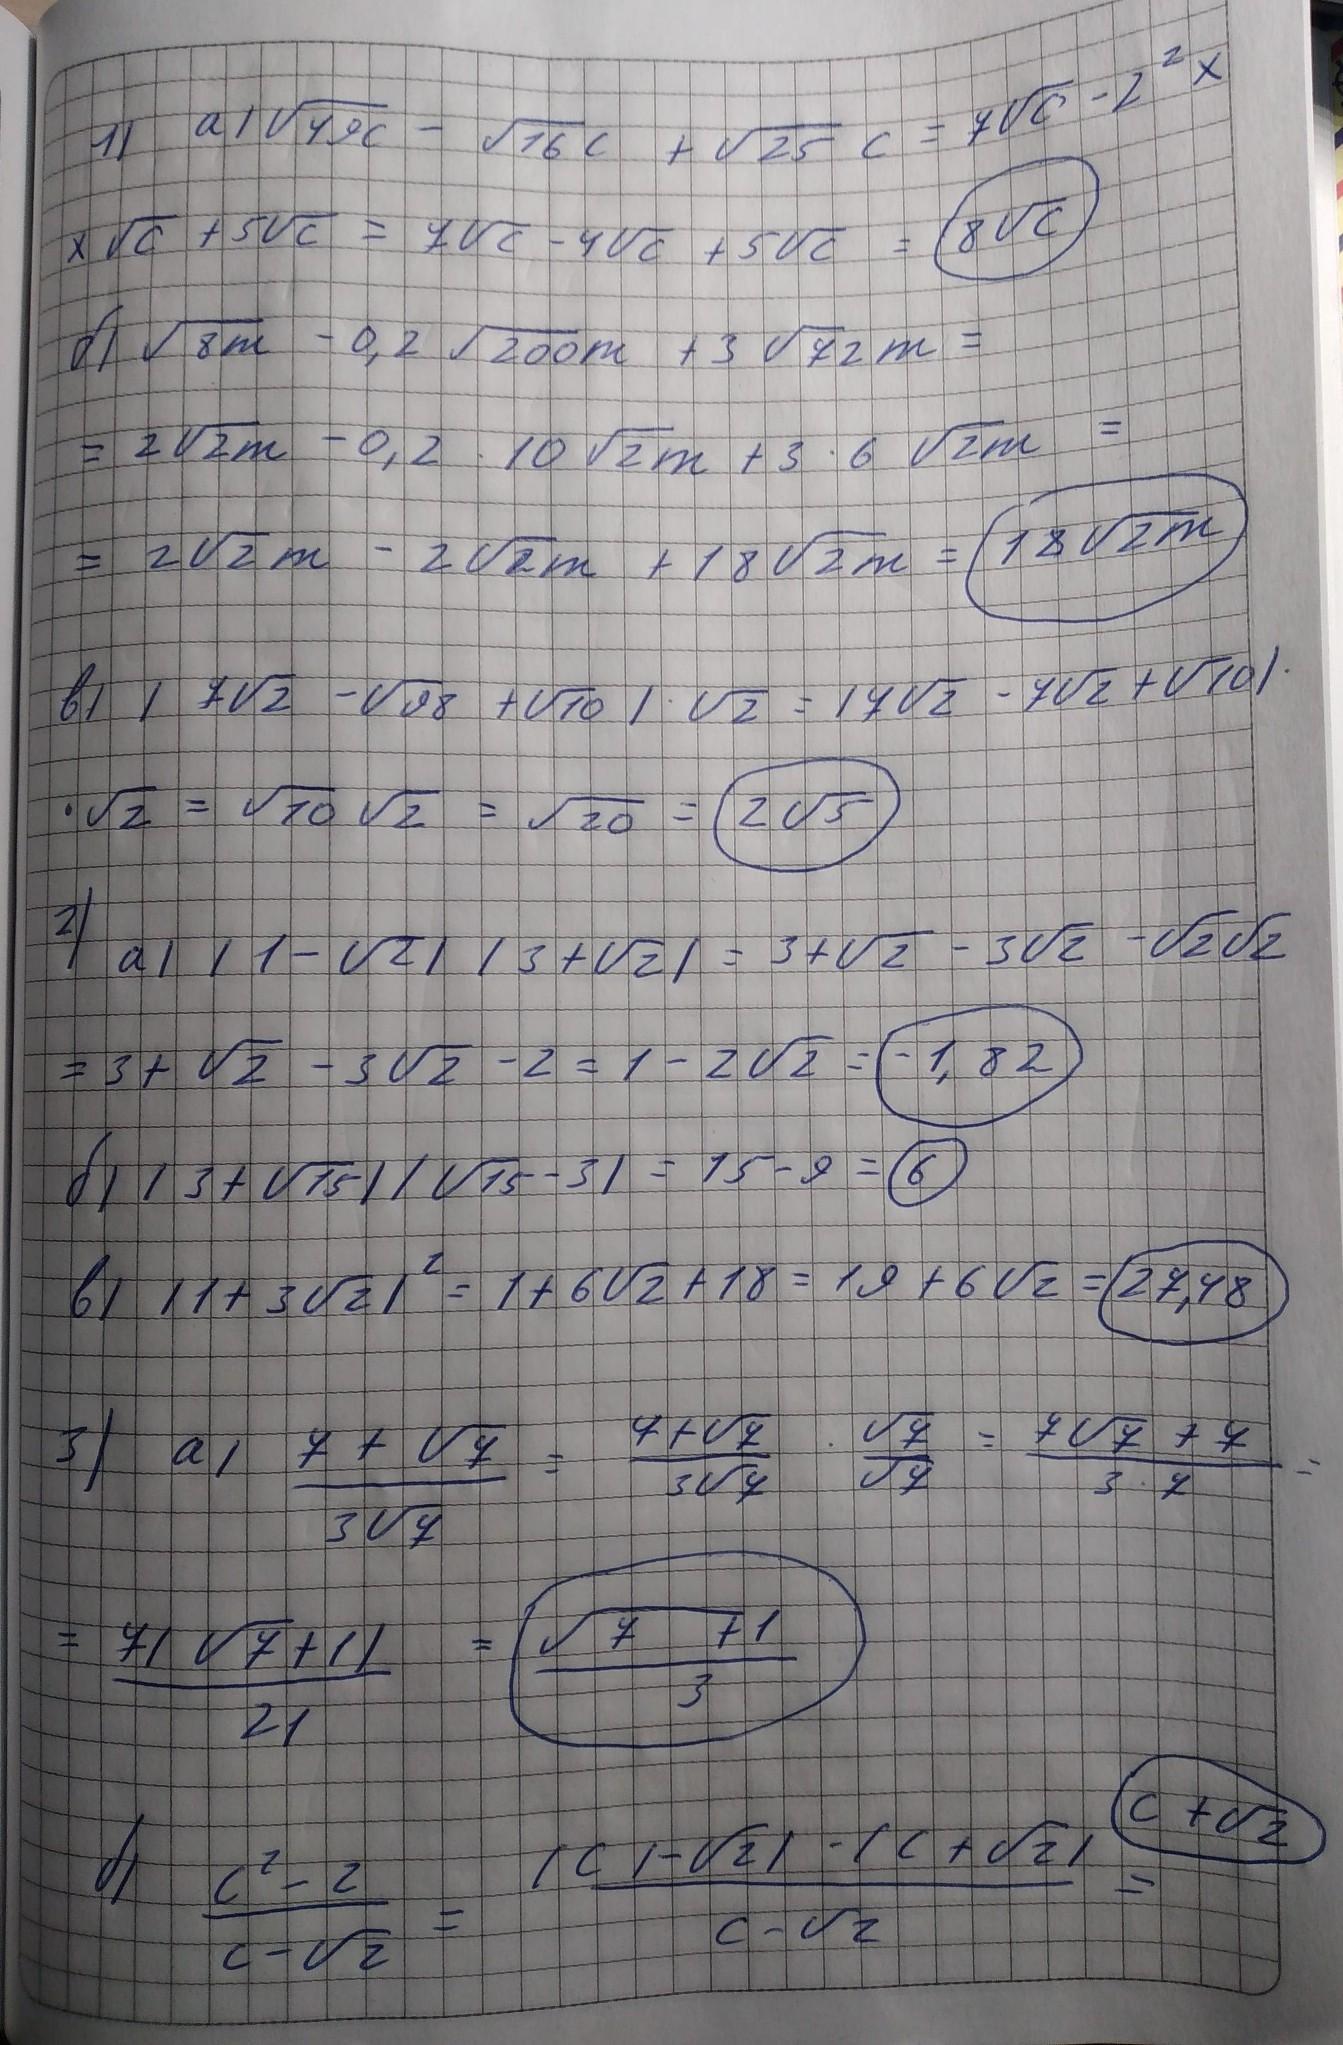 1) а) √49c - √16c + √25 c = 7√c - 2² x
x √c + 5√c = 7√c - 4√c + 5√c = 8√c
б) √8m - 0,2 √200m + 3 √72m =
= 2√2m - 0,2 · 10 √2m + 3 · 6 √2m =
= 2√2m - 2√2m + 18√2m = 18√2m
в) ( 7√2 - √98 + √10 ) · √2 = (7√2 - 7√2 + √10) ·
· √2 = √10 √2 = √20 = 2√5
2) а) (1 - √2) (3 + √2) = 3 + √2 - 3√2 - √2√2
= 3 + √2 - 3√2 - 2 = 1 - 2√2 = -1,82
б) (3 + √15) (√15 - 3) = 15 - 9 = 6
в) (1 + 3√2)² = 1 + 6√2 + 18 = 19 + 6√2 = 27,48
3) а) (7 + √7)/(3√7) = (7 + √7)/(3√7) · √7/√7 = (7√7 + 7)/(3 · 7) =
= 7(√7 + 1)/21 = (√7 + 1)/3
б) (c² - 2)/(c - √2) = (c) - √2) - (c + √2)/(c - √2) = c + √2